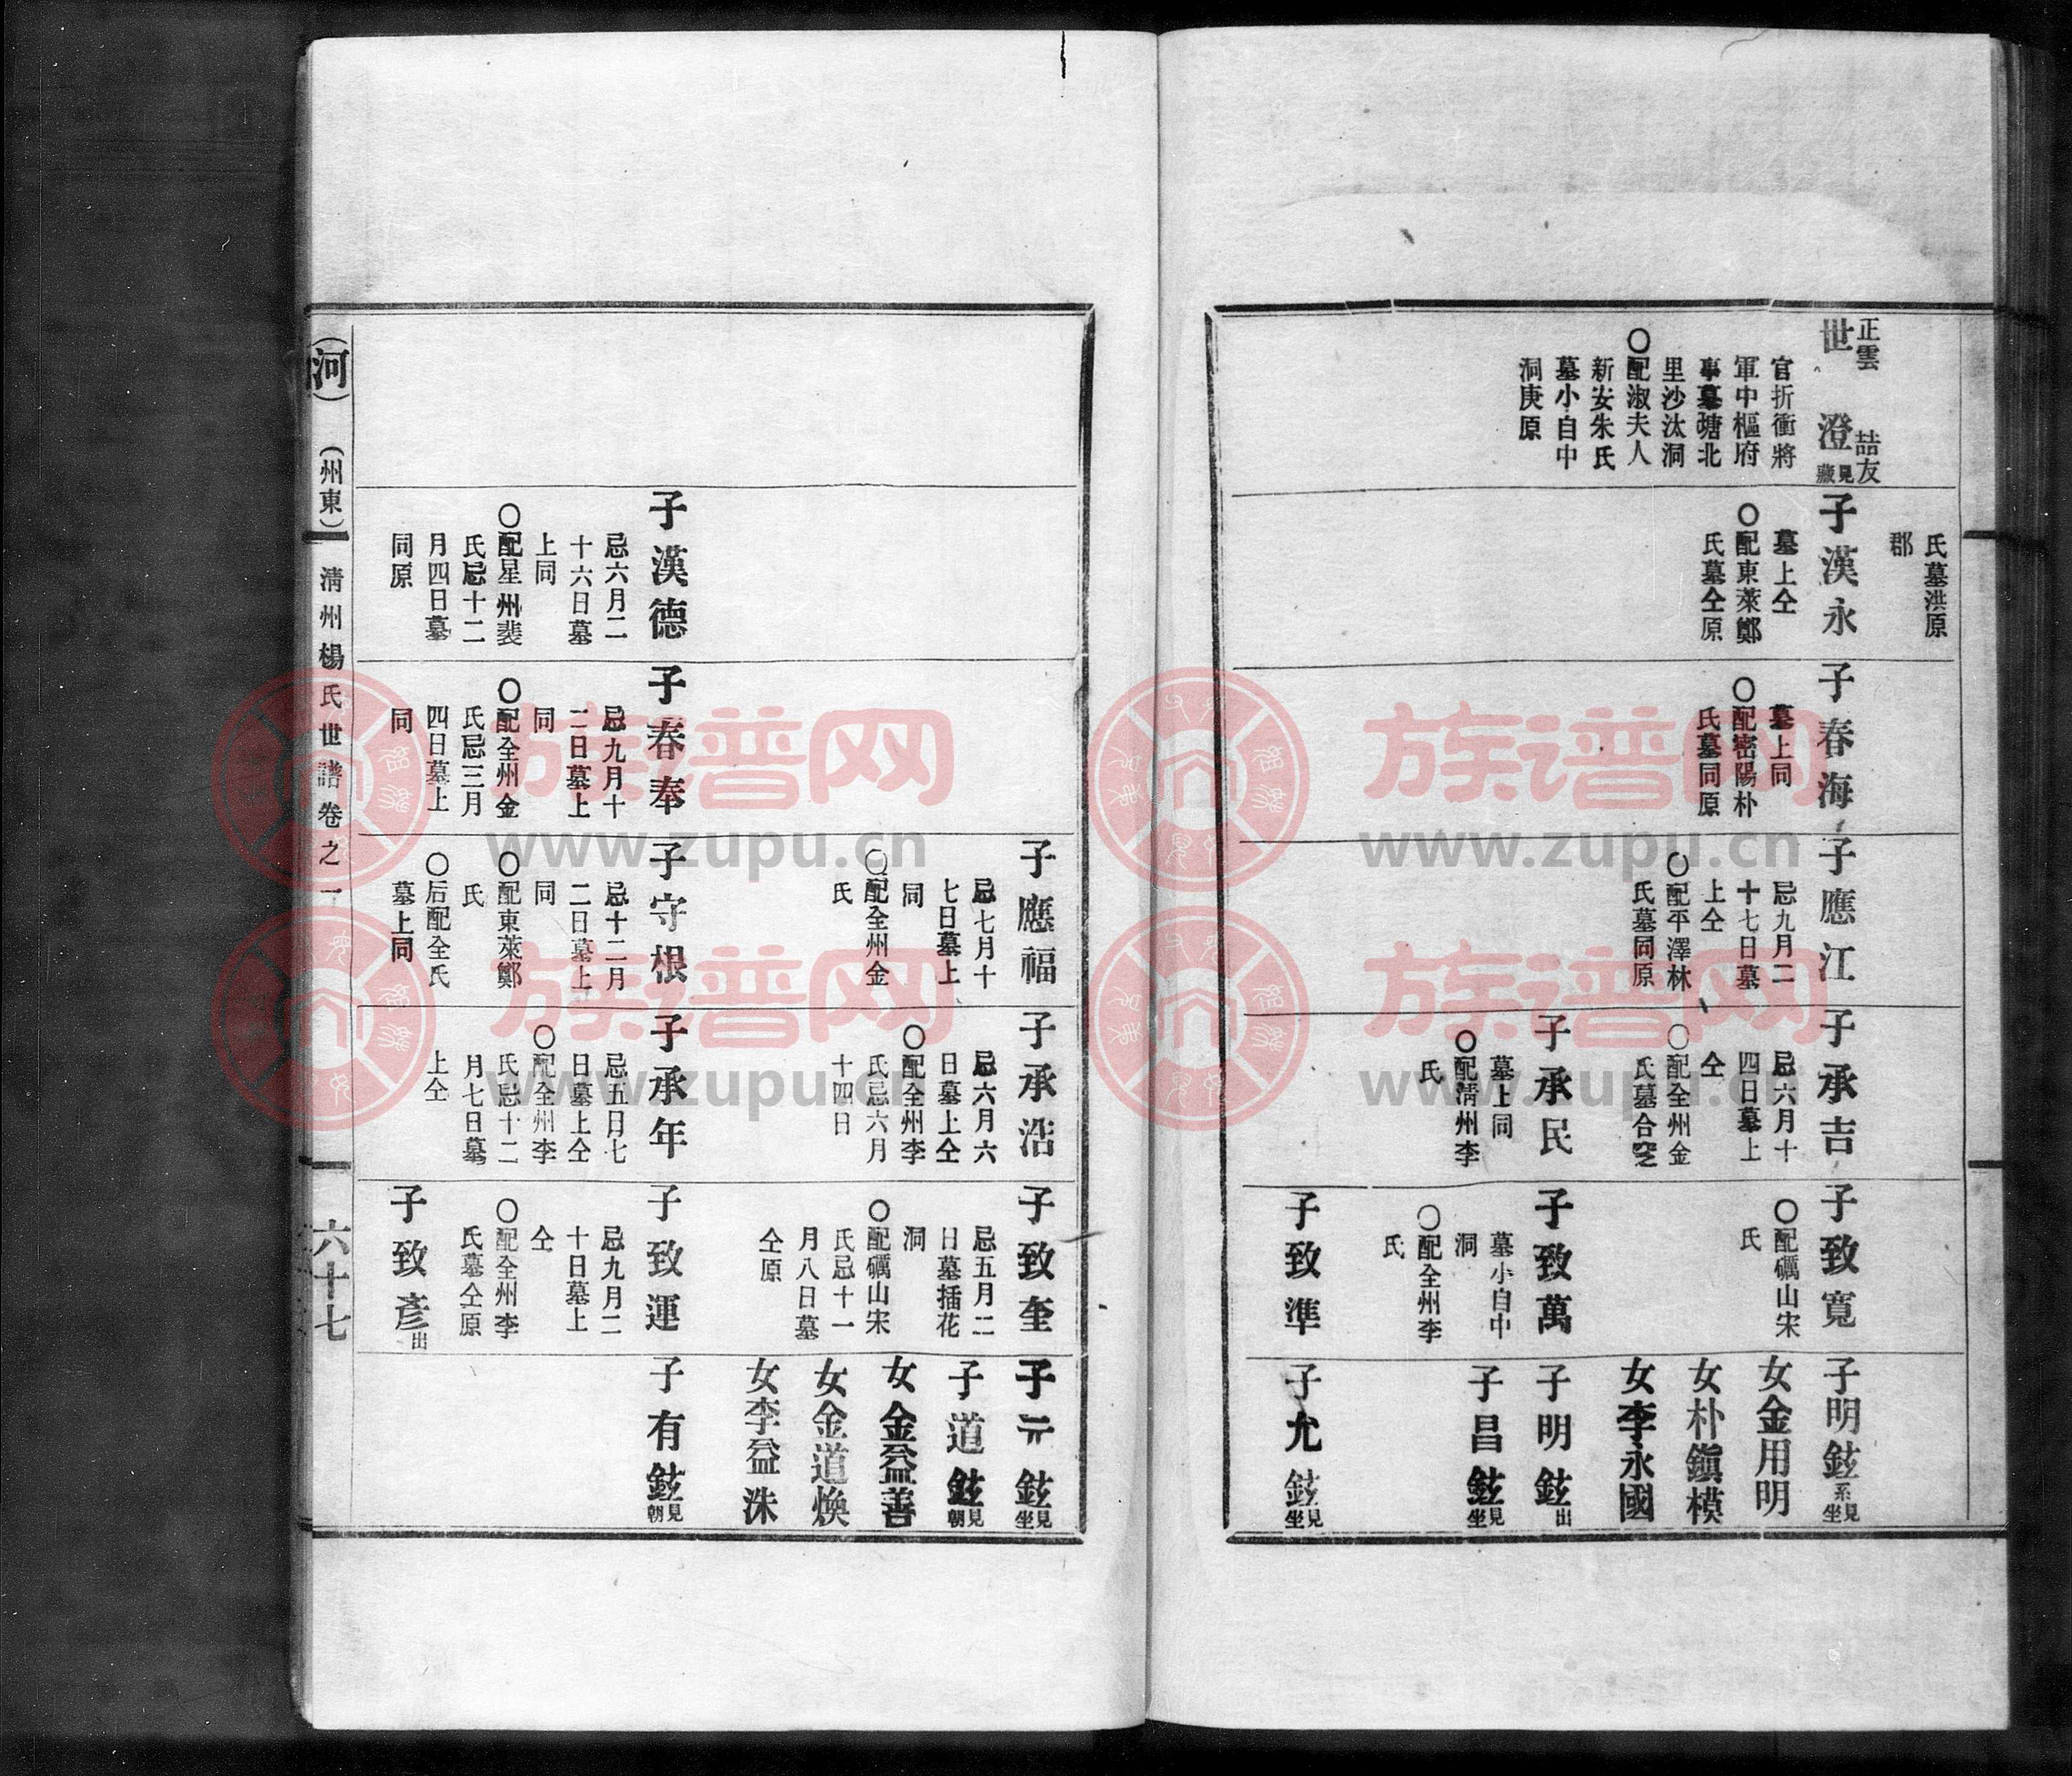 氏墓洪原
郡
正雲 喆友
世澄見藏
官折衝將
軍中樞府
事墓塘北
里沙汰洞
〇配淑夫人
新安朱氏
墓小自中
洞庚原
子漢永
墓上仝
〇配東萊鄭
氏墓仝原
子春海
墓上同
〇配密陽朴
氏墓同原
子應江
忌九月二
十七日墓
上仝
〇配平澤林
氏墓同原
子承吉
忌六月十
四日墓上
仝
〇配全州金
氏墓合窆
子承民
墓上同
〇配淸州李
氏
子致寬
〇配礪山宋
氏
子致萬
墓小自中
洞
〇配全州李
氏
子致準
子明鉉系見坐
女金用明
女朴鎭模
女李永國
子明鉉出
子昌鉉見坐
子允鉉見坐
子漢德
忌六月二
十六日墓
上同
〇配星州裴
氏忌十二
月四日墓
同原
子春奉
忌九月十
二日墓上
同
〇配全州金
氏忌三月
四日墓上
同
子應福
忌七月十
七日墓上
同
〇配全州金
氏
子守根
忌十二月
二日墓上
同
〇配東萊鄭
氏
〇后配全氏
墓上同
子承浩
忌六月六
日墓上仝
〇配全州李
氏忌六月
十四日
子承年
忌五月七
日墓上仝
〇配全州李
氏忌十二
月七日墓
上仝
子致奎
忌五月二
日墓揷花
洞
〇配礪山宋
氏忌十一
月八日墓
仝原
子致運
忌九月二
十日墓上
仝
〇配全州李
氏墓仝原
子致彥出
子元鉉見坐
子道鉉見朝
女金益善
女金道煥
女李益洙
子有鉉見朝
（河）（州東）淸州楊氏世譜卷之一 六十七
族谱网
www.zupu.cn
族谱网
www.zupu.cn
族谱网
www.zupu.cn
族谱网
www.zupu.cn